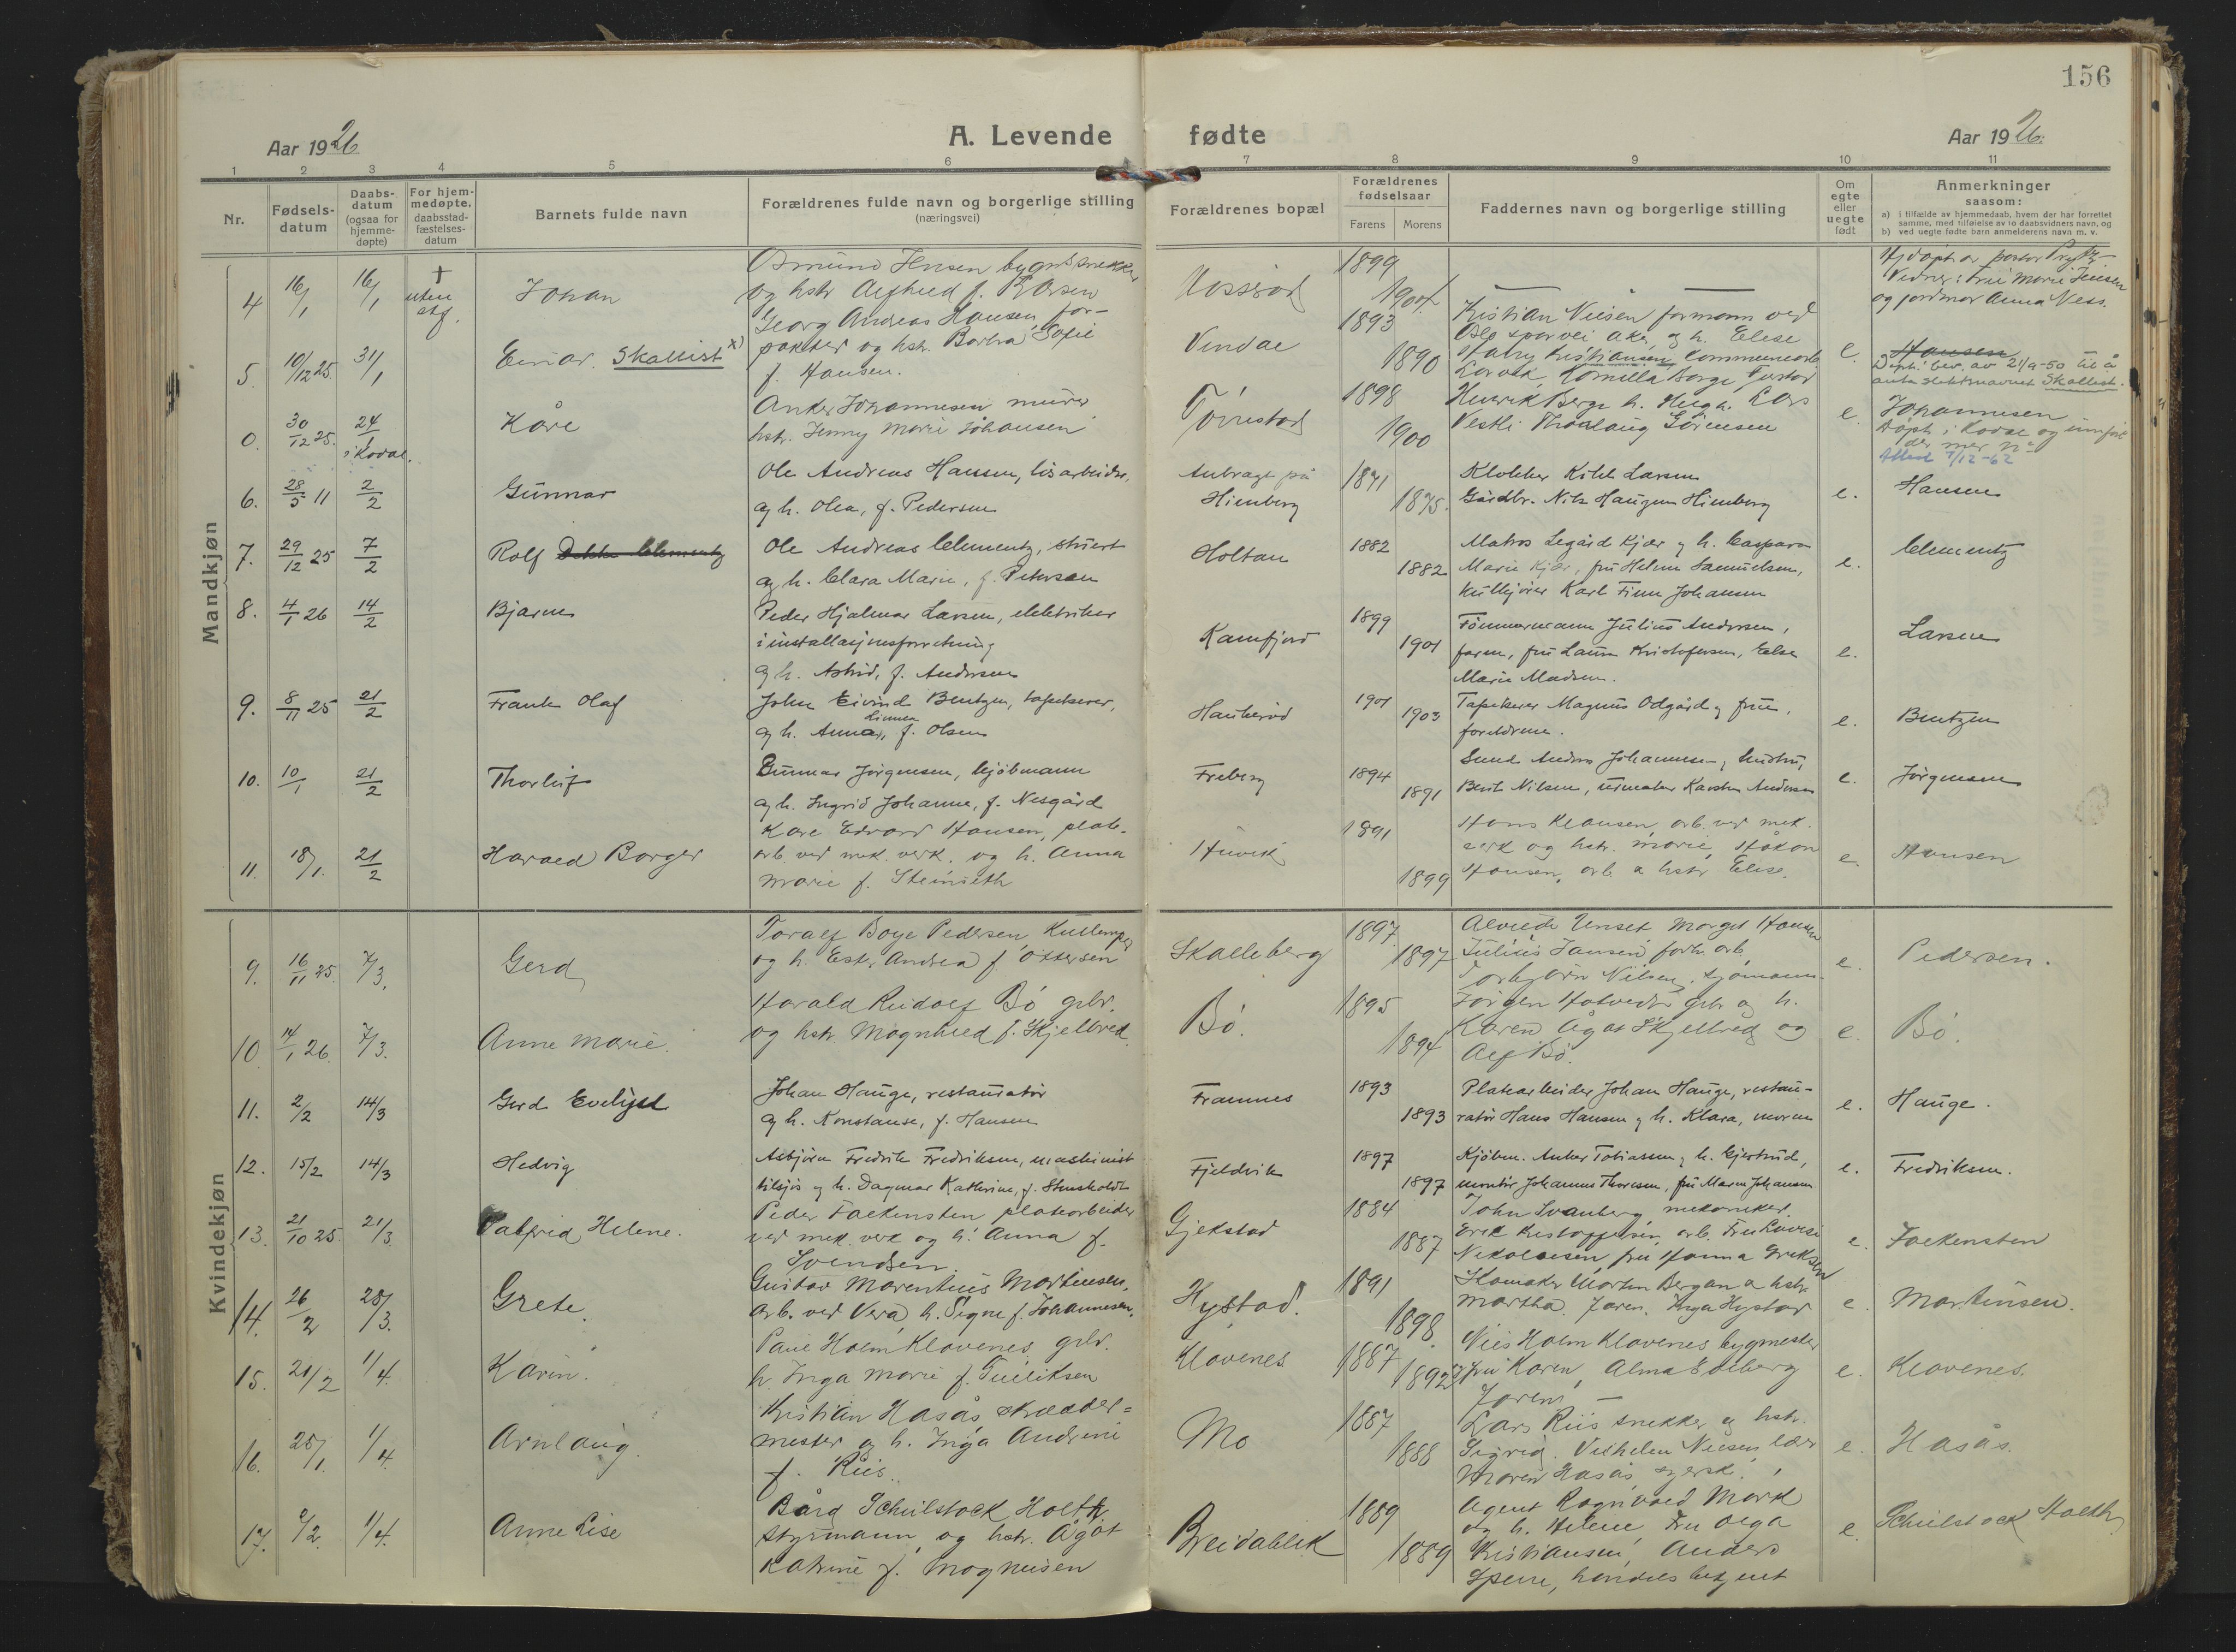 156
Aar 1926
A. Levende fødte
Aar 1926.
1 2 3 4 5 6 7 8 9 10 11
Nr.
Fødsels-
datum
Daabs-
datum
(ogsaa for
hjemme-
døpte)
For hjem-
medøpte,
daabsstad-
fæstelses-
datum
Barnets fulde navn
Forældrenes fulde navn og borgerlige stilling
(næringsvei)
Forældrenes bopæl
Forældrenes
fødselsaar
Farens Morens
Faddernes navn og borgerlige stilling
Om
egte
eller
uegte
født
Anmerkninger
saasom:
a) i tilfælde av hjemmedaab, hvem der har forrettet
samme, med tilføielse av to daabsvidners navn, og
b) ved uegte fødte barn anmelderens navn m. v.
Mandkjøn
4 16/1 16/1 + uten stf.
Johan
Osmund Jensen bygn.snekker
og hstr Alfhild f. Larsen
1899
1904
Hjdøpt av pastor
Vidner: Frue Marie Jensen
og jordmor Anna Ness.
5. 10/12 25. 31/1
Einar. Skallist x)
Georg Andreas Hansen, for-
pakter og hstr. Borbra Sofie
f. Hansen.
Vindal
1893
1890
Kristian Nilsen formann ved
Oslo sporvei aks. og h. Elise
Harry Kristiansen kommunearb.
Larvik, Kornelia Borge Tjerstad
e.
Hansen
Dept. bev. av 21/9-50 til å
anta slektsnavnet Skallist.
0. 30/12 25. 24/1 i Kodal.
Kåre
Anker Johannesen murer
hstr. Jenny Marie Johansen
Törrestad
1898
1900
Henrik Berge h. Helga. Lars
Vestli Thoralaug Sörensen
e.
Johannesen
Döpt i Kodal og innfört
der mer nr
Attest 7/12-62
6. 28/5 11 2/2
Gunnar
Ole Andreas Hansen, lösarbeider,
og h. Olea, f. Pedersen
Anbragt på
Himberg
1871
1875.
Klokker Kihl Larsen
Gårdbr. Nils Haugen Himberg
e.
Hansen
7. 29/12 25 7/2
Rolf
Ole Andreas Clementz, stuert
og h. Clara Marie, f. Petersen
Holtan
1882
1882
Matros Legård Kjær og h. Caspara
Marie Kjær, fru Helene Samuelsen,
kullkjører Karl Finn Johansen
e.
Clementz
8. 4/1 26 14/2
Bjarne
Peder Hjalmar Larsen, elektriker
i installasjonsforretning
og h. Astrid, f. Andersen
Kamfjord
1899
1901
Tömmermann Julius Andersen,
faren, fru Laura Kristofersen, Else
Marie Madsen.
e.
Larsen
9. 8/11 25 21/2
Frank Olaf
John Eivind Bentzen, tapetserer,
og h. Anna Linnea, f. Olsen
Haukeröd
1901
1903
Tapetserer Magnus Odgård og frue,
foreldrene.
e.
Bentzen
10. 10/1 21/2
Thorleif
Gunnar Jörgensen, kjöbmann
og h. Ingrid Johanne, f. Nesgård
Freberg
1894
1891
Anders Johannesen og hustru,
Berit Nilsen, urmaker Karsten Andersen
e.
Jörgensen
11. 18/1. 21/2
Harald Borger
Kare Edvard Hansen, plate-
arb. ved mek. verk. og h. Anna
Marie f. Steinseth
Huvik
1891
1899
Hans Klausen, arb. ved mek.
verk og hstr. Marie, Håkon
Hansen, arb. & hstr Elise.
e.
Hansen
Kvindekjøn
9. 16/11 25. 7/3.
Gerd
Toralf Boye Pedersen, Kullemper
og h. Ester Andrea f. Ottersen
Skalleberg
1897
1897
Alvilde Unset Margit Hansen
Julius Jansen forh. arb.
Torbjörn Nilsen, sjömann.
e.
Pedersen.
10. 14/1 26. 7/3.
Anne Marie.
Harald Rudolf Bö gbr.
og hstr Magnhild f. Skjelbred.
Bö.
1895
1894
Jörgen Hotvedt gbr og h.
Karen Ågot Skjelbred og
Alf Bö.
e.
Bö.
11. 2/2 14/3
Gerd Evelyd
Johan Hauge, restauratör
og h. Konstanse, f. Hansen
Framnes
1893
1893
Platearbeider Johan Hauge, restau-
ratör Hans Hansen og h. Klara, moren
e.
Hauge.
12. 15/2 14/3
Hedvig
Asbjörn Fredrik Fredriksen, maskinist
tilsjös og h. Dagmar Kathrine, f. Stensholdt
Fjeldvik
1897
1897
Kjöbm. Anker Tobiassen og h. Gjertrud,
montör Johannes Thoresen, fru Maren Johansen
e.
Fredriksen.
13. 21/10 25. 21/3
Palfrid Helene.
Peder Falkensten platearbeider
ved mek. verk og h. Anna f.
Svendsen.
Gjekstad
1884
1887
John Svanberg mekaniker.
Erik Kristoffersen, arb. Fru Lovise
Nikolaisen, fru Hanna Eriksen
e.
Falkensten
14. 26/2 28/3.
Grete.
Gustav Marentius Martinsen,
Arb. ved Vera, h. Signe f. Johannesen.
Hystad.
1891
1898.
Skomaker Morten Bergan & hstr.
Martha. Faren. Inga Hystad
e.
Martinsen.
15. 21/2 1/4.
Karin.
Paul Holm Klavenes, gbr.
h. Inga Marie f. Tuliksen
Klavenes
1887
1892
Nils Holm Klavenes bygmester
fru Karen, Alma Solberg
Faren —
e.
Klavenes.
16. 25/1. 1/4.
Arnlaug.
Kristian Hasås, skrædder=
mester og h. Inga Andrine
f. Riis.
Mo
1887
1888
Lars Riis snekker og hstr.
Sigrid. Vilhelm Nilsen, lær
Maren Hasås, syerske.
e.
Hasås.
17. 9/2. 1/4.
Anne Lise
Bård Schulstock Holth,
styrmann, og hstr. Ågot
Katrine f. Magnusen
Breidablik
1889
1889
Agent Ragnvald Mork
og h. Helene, Fru Olga
Kristiansen, Anders
Sperre, handels betjent
e.
Schulstock Holth